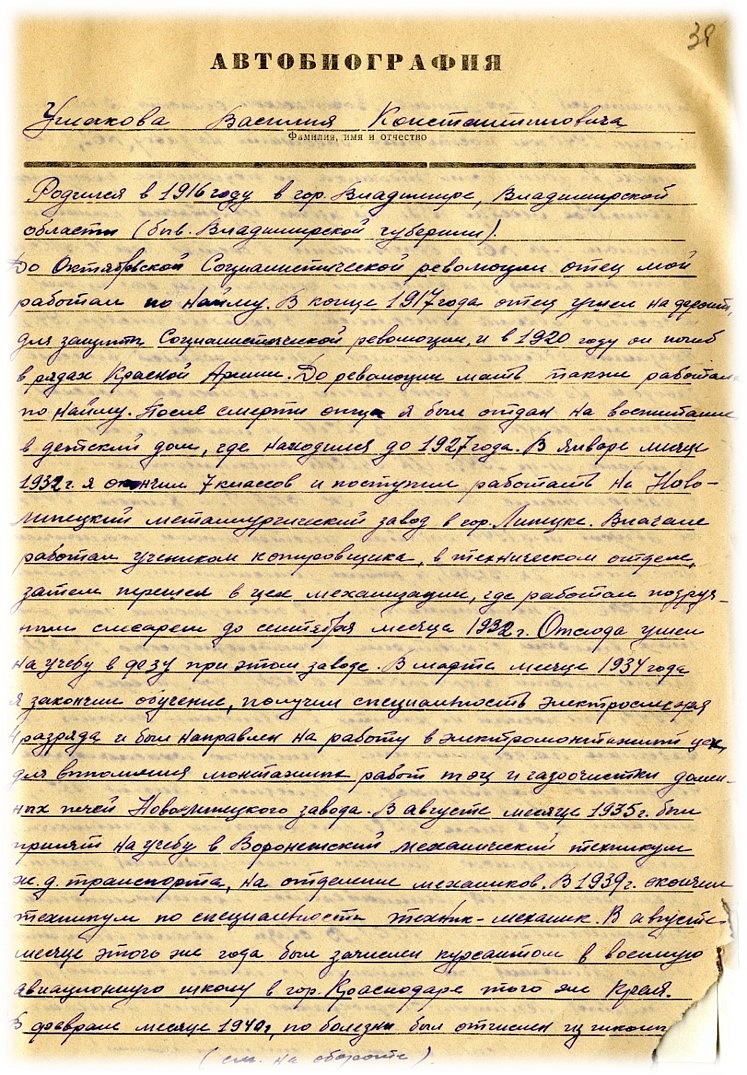 38
АВТОБИОГРАФИЯ
Ушакова Василия Константиновича
Фамилия, имя и отчество
Родился в 1916 году в гор. Владимире, Владимирской
области (быв. Владимирской губернии).
До Октябрьской Социалистической революции отец мой
работал по найму. В конце 1917 года отец ушел на фронт,
для защиты Социалистической революции, и в 1920 году он погиб
в рядах Красной Армии. До революции мать также работала
по найму. После смерти отца я был отдан на воспитание
в детский дом, где находился до 1927 года. В январе месяце
1932 г. я окончил 7 классов и поступил работать на Ново-
липецкий металлургический завод в гор. Липецке. Вначале
работал учеником копировщика, в техническом отделе,
затем перешел в цех механизации, где работал подруч-
ным слесаря до сентября месяца 1932 г. Отсюда ушел
на учебу в фзу при этом заводе. В марте месяце 1934 года
я закончил обучение, получил специальность электрослесаря
4 разряда и был направлен на работу в электромонтажный цех,
для выполнения монтажных работ тэц и газоочистки домен-
ных печей Ново-Липецкого завода. В августе месяце 1935 г. был
принят на учебу в Воронежский механический техникум
ж.д. транспорта, на отделение механиков. В 1939 г. окончил
техникум по специальности техник-механик. В августе
месяце этого же года был зачислен курсантом в военную
авиационную школу в гор. Краснодаре того же Края.
В феврале месяце 1940 г, по болезни был отчислен из школы
(см. на обороте).